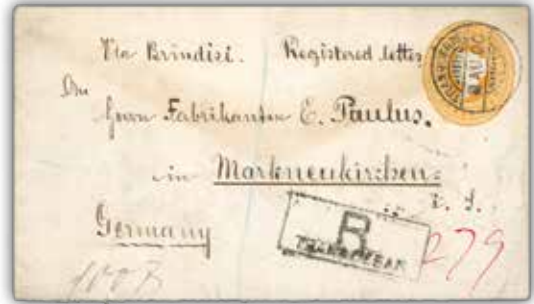 Via Brindisi. Registered letter
An
Herrn Fabrikanten E. Paulus.
in Markneukirchen.
i. S.
Germany
R
279